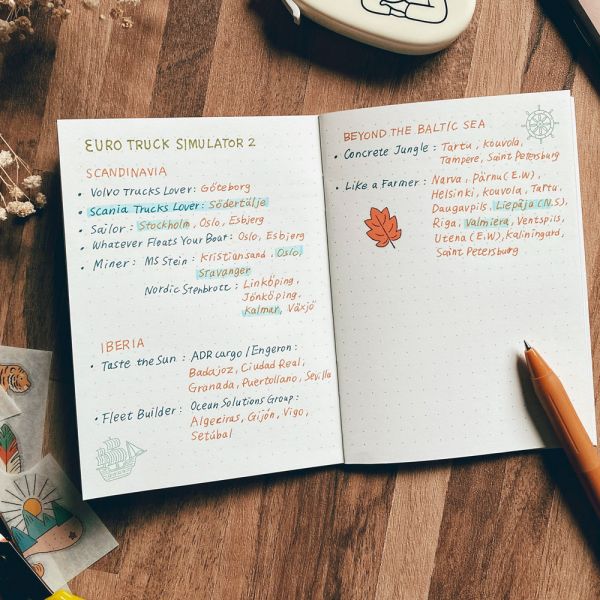 EURO TRUCK SIMULATOR 2
SCANDINAVIA
• Volvo Trucks Lover: Göteborg
• Scania Trucks Lover: Södertälje
• Sailor: Stockholm, Oslo, Esbjerg
• Whatever Floats Your Boat: Oslo, Esbjerg
• Miner: MS Stein: Kristiansand, Oslo,
Stavanger
Nordic Stenbrott: Linköping,
Jönköping,
Kalmar, Växjö
IBERIA
• Taste the Sun: ADR cargo/Engeron:
Badajoz, Ciudad Real,
Granada, Puertollano, Sevilla
• Fleet Builder: Ocean Solutions Group:
Algeciras, Gijón, Vigo,
Setúbal
BEYOND THE BALTIC SEA
• Concrete Jungle: Tartu, Kouvola,
Tampere, Saint Petersburg
• Like a Farmer: Narva, Pärnu (E.W),
Helsinki, kouvola, Tartu,
Daugavpils, Liepāja (N.S),
Riga, Valmiera, Ventspils,
Utena (E.W), Kaliningard,
Saint Petersburg